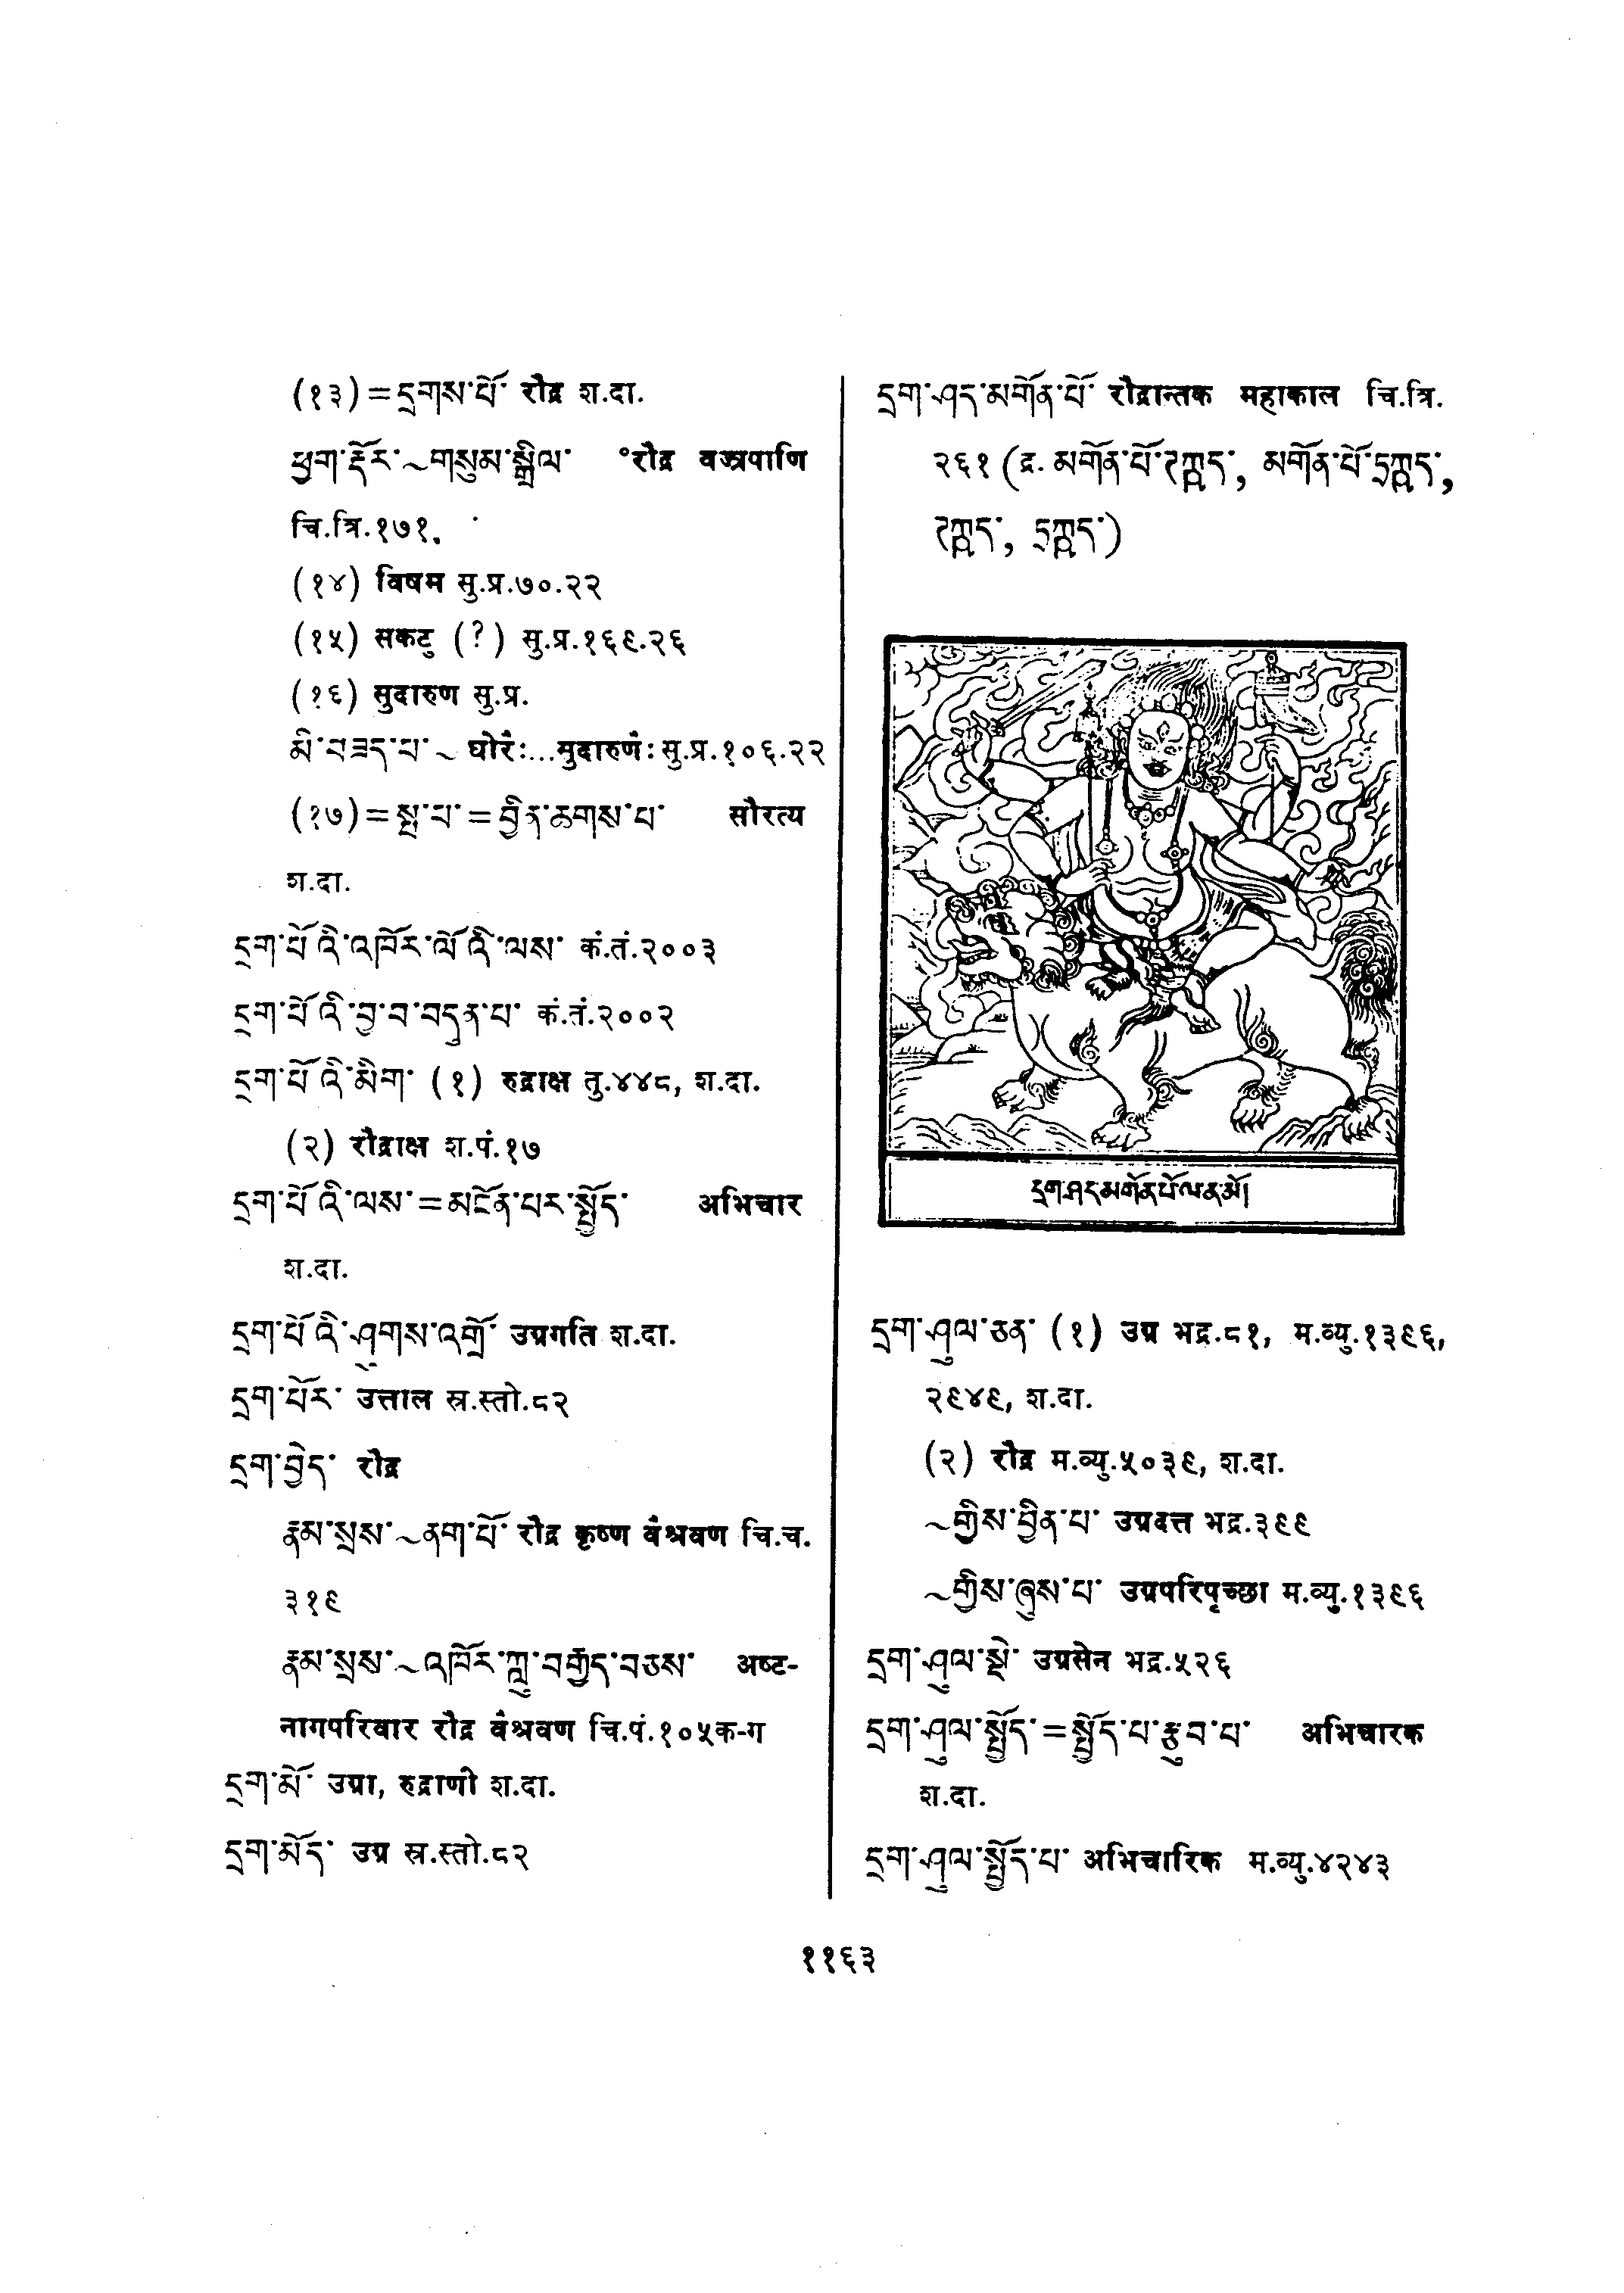 (१३)=དྲགས་པོ་ रौद्र श.दा.
ཕྱག་རྡོར་~གསུམ་སྒྲིལ་ °रौद्र वज्रपाणि
चि.त्रि.१७१.
(१४) विषम सु.प्र.७०.२२
(१५) सकटु (?) सु.प्र.१६९.२६
(१६) सुदारुण सु.प्र.
མི་བཟད་པ་~ घोरैः...सुदारुणैः सु.प्र.१०६.२२
(१७)=སྤྲ་བ་=བྱིན་ཆགས་པ་ सौरत्य
श.दा.
དྲག་པོའི་འཁོར་ལོའི་ལས་ कं.तं.२००३
དྲག་པོའི་བྱ་བ་བདུན་པ་ कं.तं.२००२
དྲག་པོའི་མིག་ (१) रुद्राक्ष तु.४४८, श.दा.
(२) रौद्राक्ष श.पं.१७
དྲག་པོའི་ལས་=མངོན་པར་སྤྱོད་ अभिचार
श.दा.
དྲག་པོའི་ཤུགས་འགྲོ་ उग्रगति श.दा.
དྲག་པོར་ उत्ताल स्र.स्तो.८२
དྲག་བྱེད་ रौद्र
རྣམ་སྲས་~ནག་པོ་ रौद्र कृष्ण वैश्रवण चि.च.
३१९
རྣམ་སྲས་~འཁོར་ཀླུ་བརྒྱད་བཅས་ अष्ट-
नागपरिवार रौद्र वैश्रवण चि.पं.१०५क-ग
དྲག་མོ་ उग्रा, रुद्राणी श.दा.
དྲག་མོད་ उग्र स्र.स्तो.८२
དྲག་ཤད་མགོན་པོ་ रौद्रान्तक महाकाल चि.त्रि.
२६१ (द्र. མགོན་པོ་ཊཀྐད་, མགོན་པོ་ཊྲཀྐད་,
ཊཀྐད་, ཊྲཀྐད་)
དྲག་ཤད་མགོན་པོ་ལ་ན་མོ།
དྲག་ཤུལ་ཅན་ (१) उग्र भद्र.८१, म.व्यु.१३९६,
२९४९, श.दा.
(२) रौद्र म.व्यु.५०३९, श.दा.
~གྱིས་བྱིན་པ་ उग्रदत्त भद्र.३९९
~གྱིས་ཞུས་པ་ उग्रपरिपृच्छा म.व्यु.१३९६
དྲག་ཤུལ་སྡེ་ उग्रसेन भद्र.५२६
དྲག་ཤུལ་སྤྱོད་=སྤྱོད་པ་རྩུབ་པ་ अभिचारक
श.दा.
དྲག་ཤུལ་སྤྱོད་པ་ अभिचारिक म.व्यु.४२४३
११६३